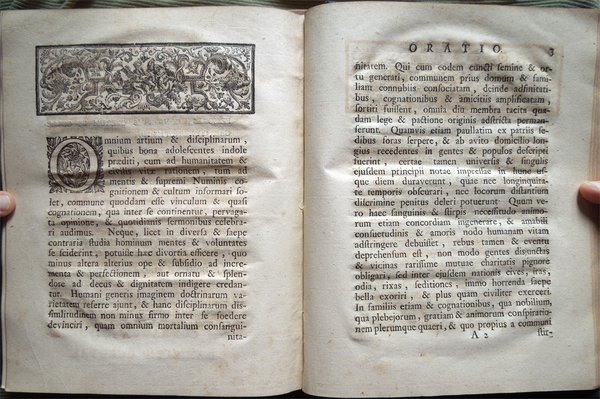 Omnium artium & disciplinarum,
quibus bona adolescentes indole
præditi, cum ad humanitatem &
civilis vitæ rationem, tum ad
mentis & supremi Numinis co-
gnitionem & cultum informari so-
let, commune quoddam esse vinculum & quasi
cognationem, qua inter se continentur, pervaga-
ta opinione, & quotidianis sermonibus celebra-
ri audimus. Neque, licet in diversa & sæpe
contraria studia hominum mentes & voluntates
se sciderint, potuisse hæc divortia efficere, quo
minus altera alterius ope & subsidio ad incre-
menta & perfectionem, aut ornatu & splendo-
re ad decus & dignitatem indigere credan-
tur. Humani generis imaginem doctrinarum va-
rietatem referre ajunt, & hanc disciplinarum dis-
similitudinem non minus firmo inter se foedere
devinciri, quam omnium mortalium consangui-
nita-
ORATIO. 3
nitatem. Qui cum eodem cuncti semine & or-
tu generati, communem prius domum & fami-
liam connubiis consociatam, deinde adfinitati-
bus, cognationibus & amicitiis amplificatam,
sortiri fuissent, omnia diu membra tacita qua-
dam lege & pactione originis adstricta perman-
serunt. Quamvis etiam paullatim ex patriis se-
dibus foras serpere, & ab avito domicilio lon-
gius recedentes in gentes & populos describi
fuerint, certae tamen universis & singulis
ejusdem principii notae impressae in hunc us-
que diem duraverunt, quae nec longinquita-
te temporis obscurari, nec locorum distantium
discrimine penitus deleri potuerunt. Quum ve-
ro haec sanguinis & stirpis necessitudo animo-
rum etiam concordiam ingenerare, & amabili
consuetudinis & amoris nodo humanam vitam
adstringere debuisset, rebus tamen & eventu
deprehensum est, non modo gentes disjunctas
& vicinas rarissime mutuae charitatis pignore
obligari, sed inter ejusdem nationis cives, iras,
odia, rixas, seditiones, immo horrenda saepe
bella exoriri, & plus quam civiliter exerceri.
In familiis etiam & cognationibus, qua nobilium,
qua plebejorum, gratiam & animorum conspiratio-
nem plerumque quaeri, & quo propius a communi
A 2 stir-